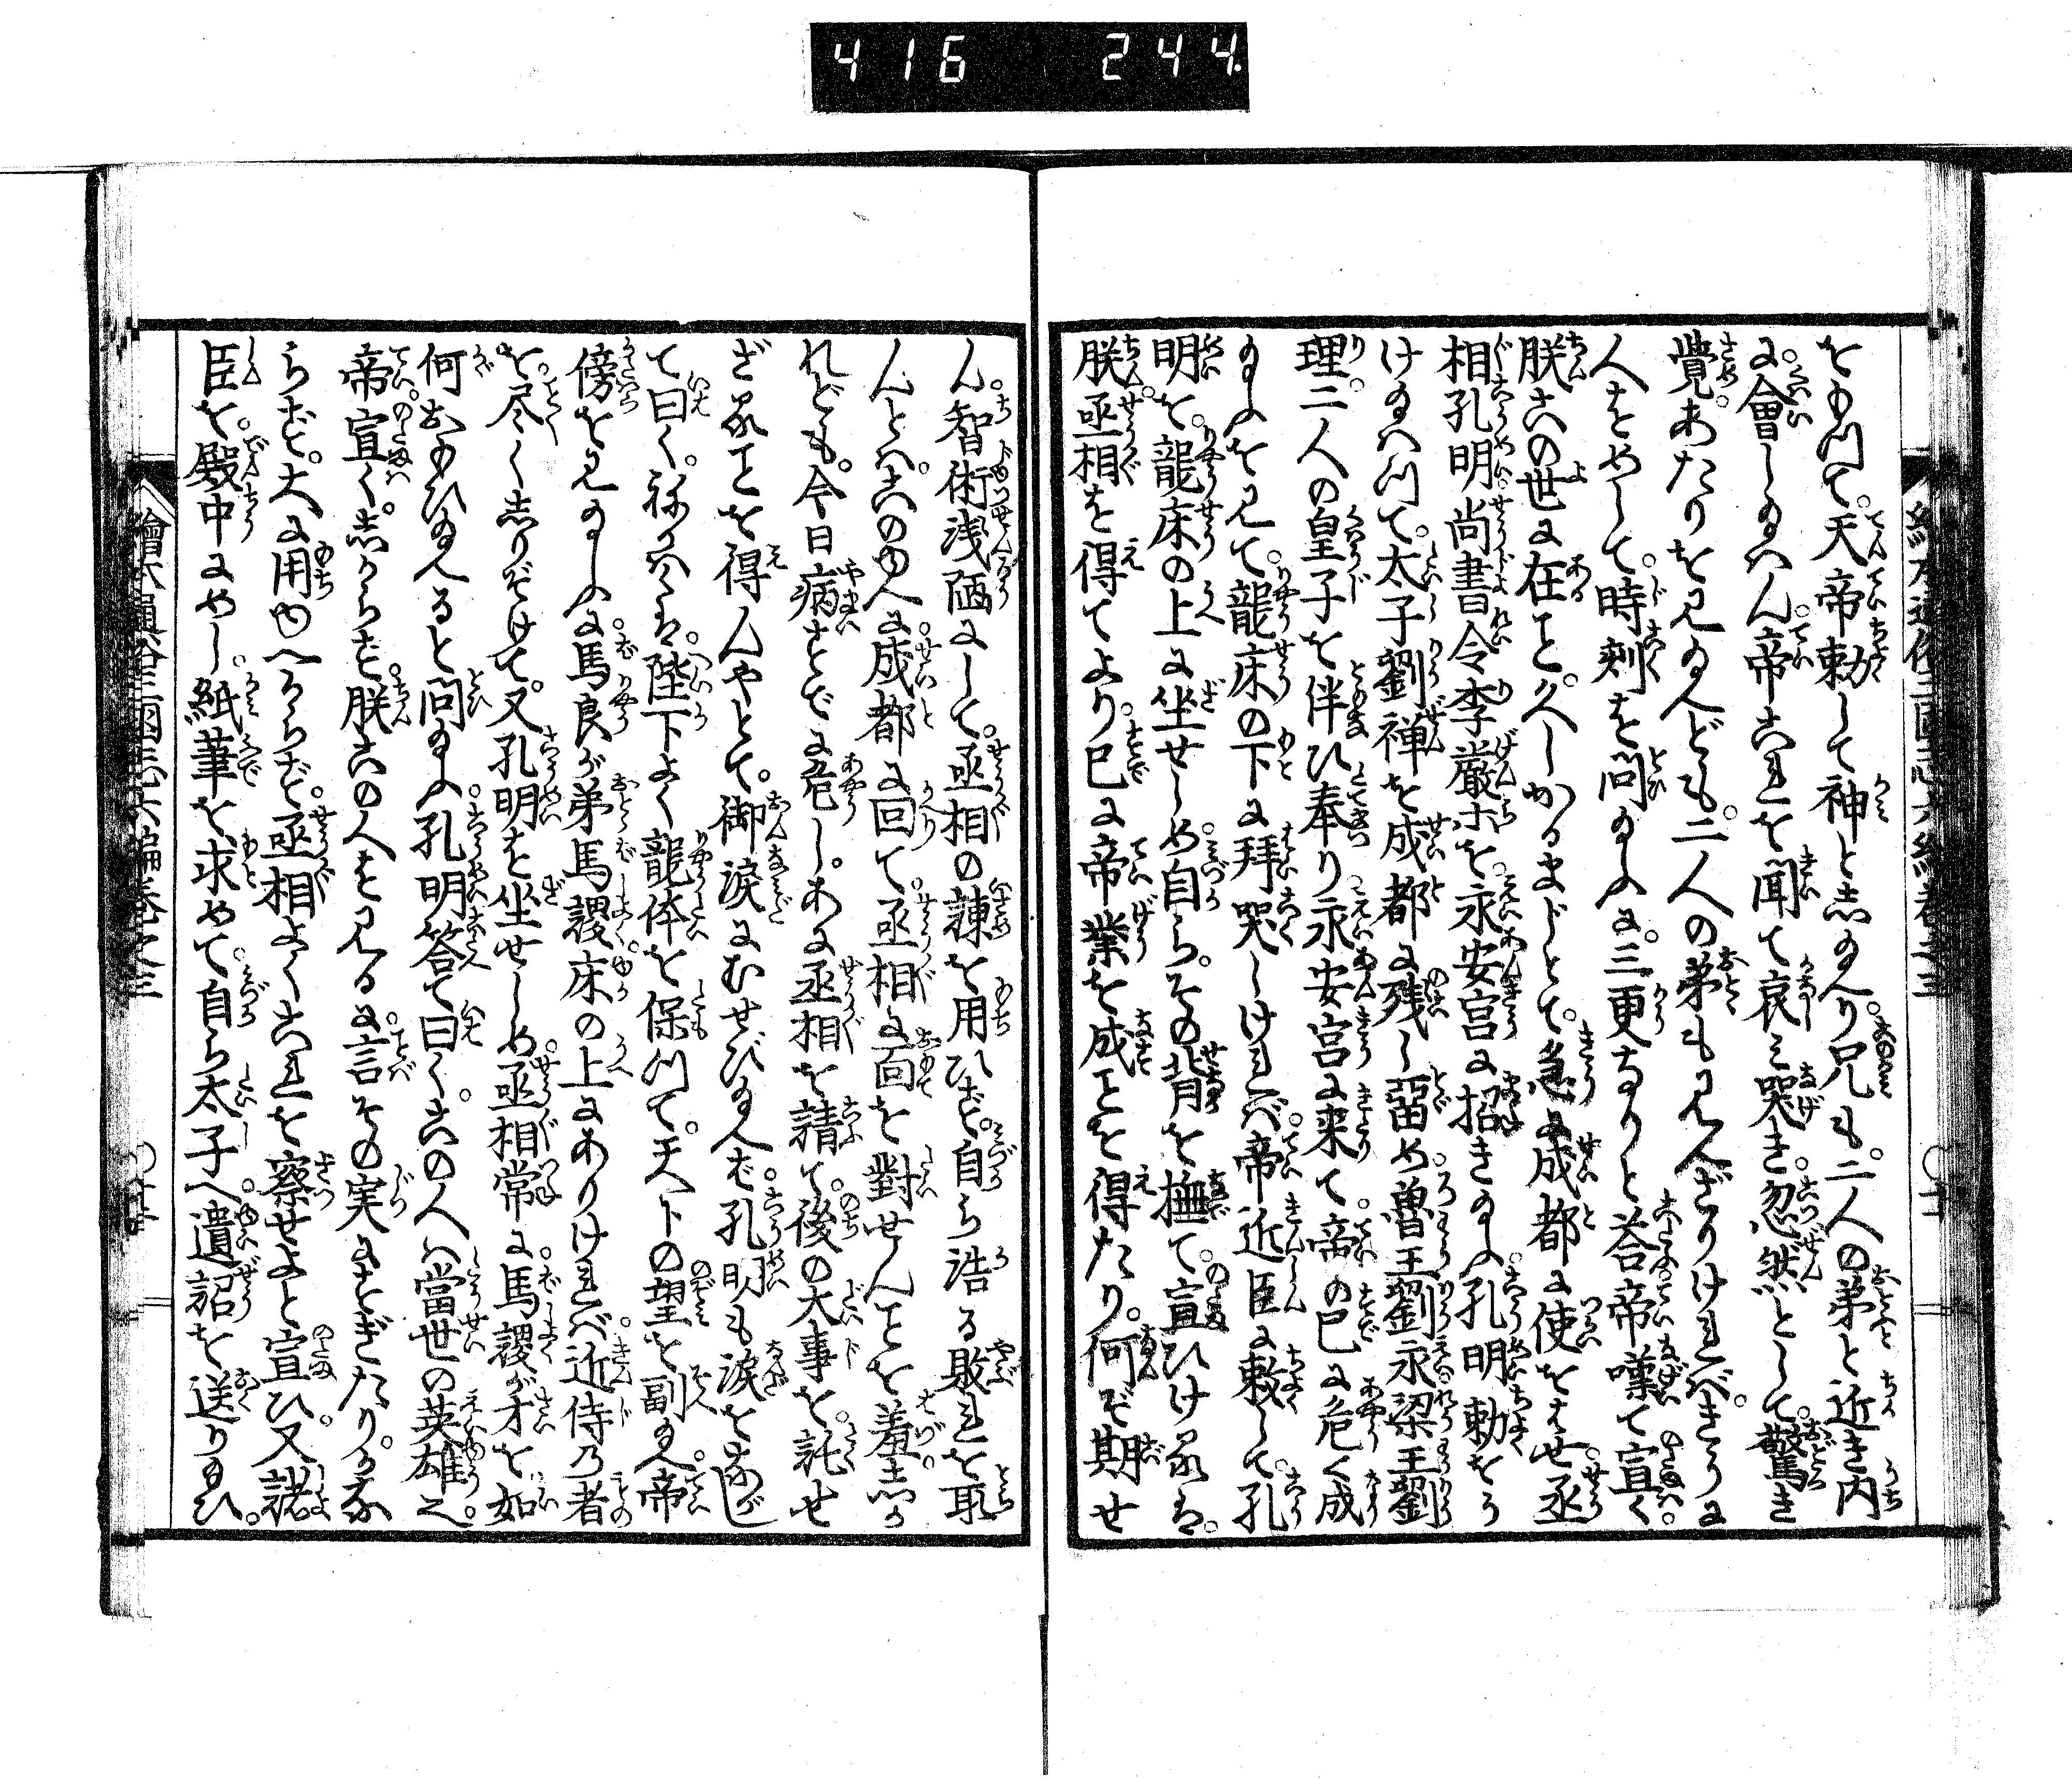 416 244
をもつて。天帝勅して神と志給へり兄も。二人の弟と近き内
に會し給へん。帝これを聞て哀み哭き。忽然として。驚き
覺。あたりを見給へども。二人の弟も見へざりければ。きうに
人をやして。時刻を問給ふに。三更なりと答帝嘆て宣く。
朕この世に在こと。久しかるまじとて。急に成都に使をはせ。丞
相孔明。尚書令李嚴等を。永安宮に招き給ふ。孔明勅をう
けたまはつて。太子劉禅を成都に残し留め。魯王劉永梁王劉
理。二人の皇子を伴ひ奉り。永安宮に来て。帝の已に危く成
給ふを見て。龍床の下に拜哭しければ。帝近臣に敕して。孔
明を。龍床の上に坐せしめ。自ら。その背を撫て。宣ひけるは。
朕。丞相を得てより。已に帝業を成ことを得たり。何ぞ期せ
ん。智術浅陋にして。丞相の諌を用ひず。自ら詰る敗れを取
んとは。この由へに。成都に回て。丞相に面を對せんことを羞。志か
れども。今日病すでに危し。あに丞相を請て。後の大事を。託せ
ざることを得んやとて。御涙にむせび給へば。孔明も涙をながし
て曰く。祢がはくは。陛下よく龍体を保つて。天下の望を副給へ。帝
傍を見給ふに。馬良が弟馬謖。床の上にありければ。近侍の者
を。尽く志りぞけて。又孔明を坐せしめ。丞相常に。馬謖が才を如
何おもひ給へると問給ふ。孔明答て曰く。この人は當世の英雄也。
帝。宣く。志からず。朕この人を見るに。言その実にすぎたり。かな
らず。大に用ゆべからず。丞相よくこれを察せよと宣ひ。又諸
臣を。殿中にやし。紙筆を求めて。自ら太子へ。遺詔を送り給ひ。